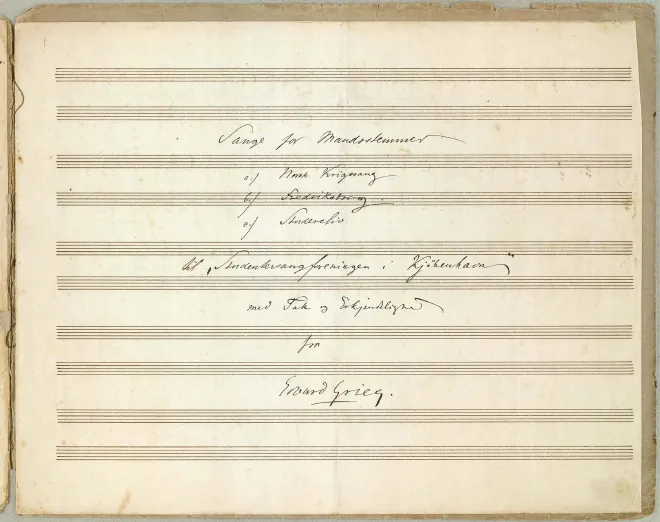 Sange for Mandsstemmer
a.) Norsk Krigssang
b.) Fredriksborg.
c.) Studereliv.
til „Studentersangforeningen i Kjöbenhavn”
med Tak og Erkjendtlighed
fra
Edvard Grieg.